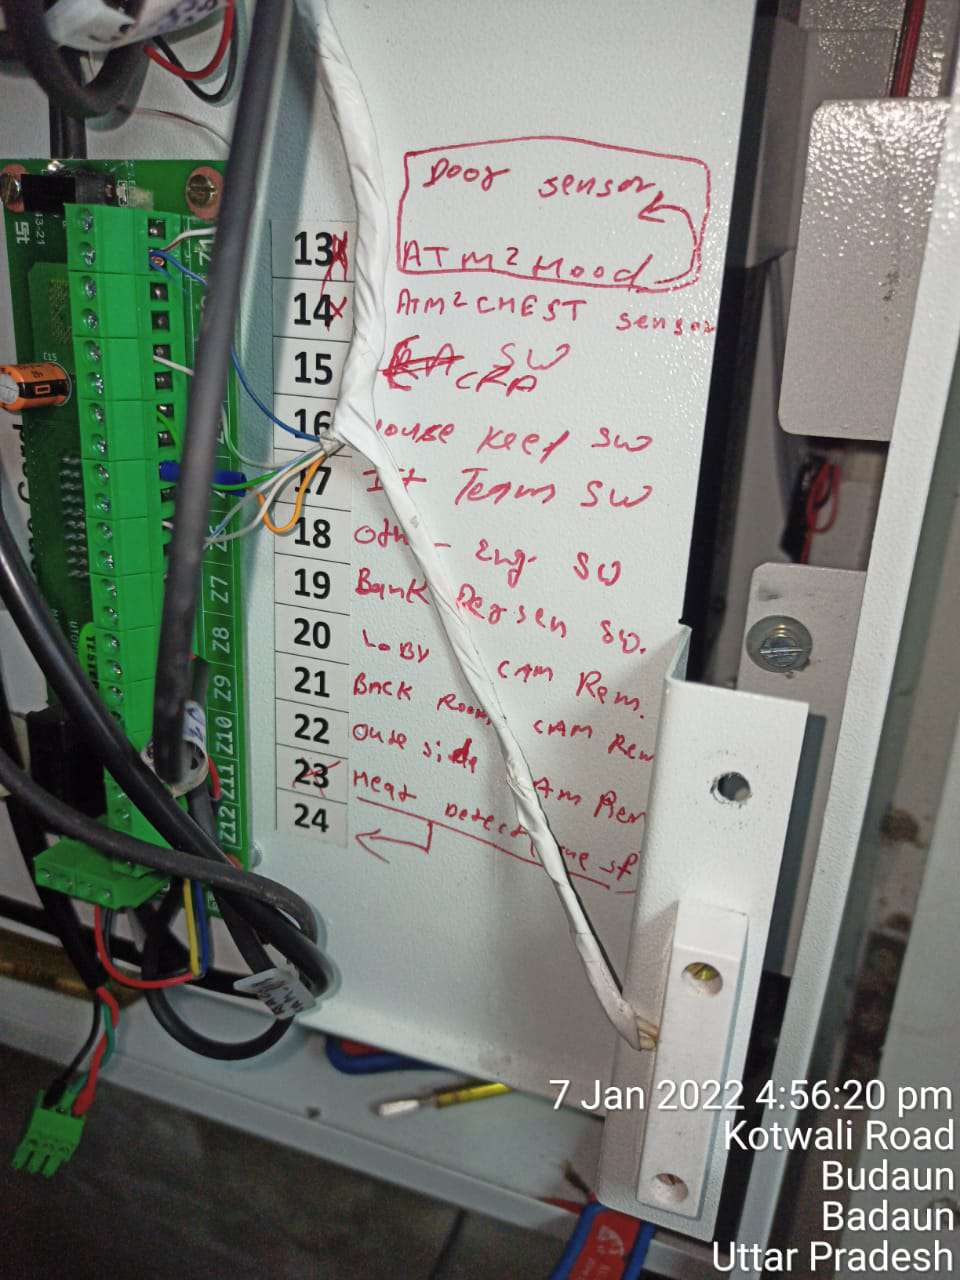 Door sensor
13 ATM2 Hood
14 ATM2 CHEST sensor
15 SW
CRA
16 ouse keep SW
17 Team SW
18 Oth Eng. SW
19 Bank Persen SW.
20 LOBY CAM Rem.
21 BACK Room CAM Rem
22 Oute side AM Rem
23 Heat Detect
24
Z7
Z8
Z9
Z10
Z11
Z12
7 Jan 2022 4:56:20 pm
Kotwali Road
Budaun
Badaun
Uttar Pradesh